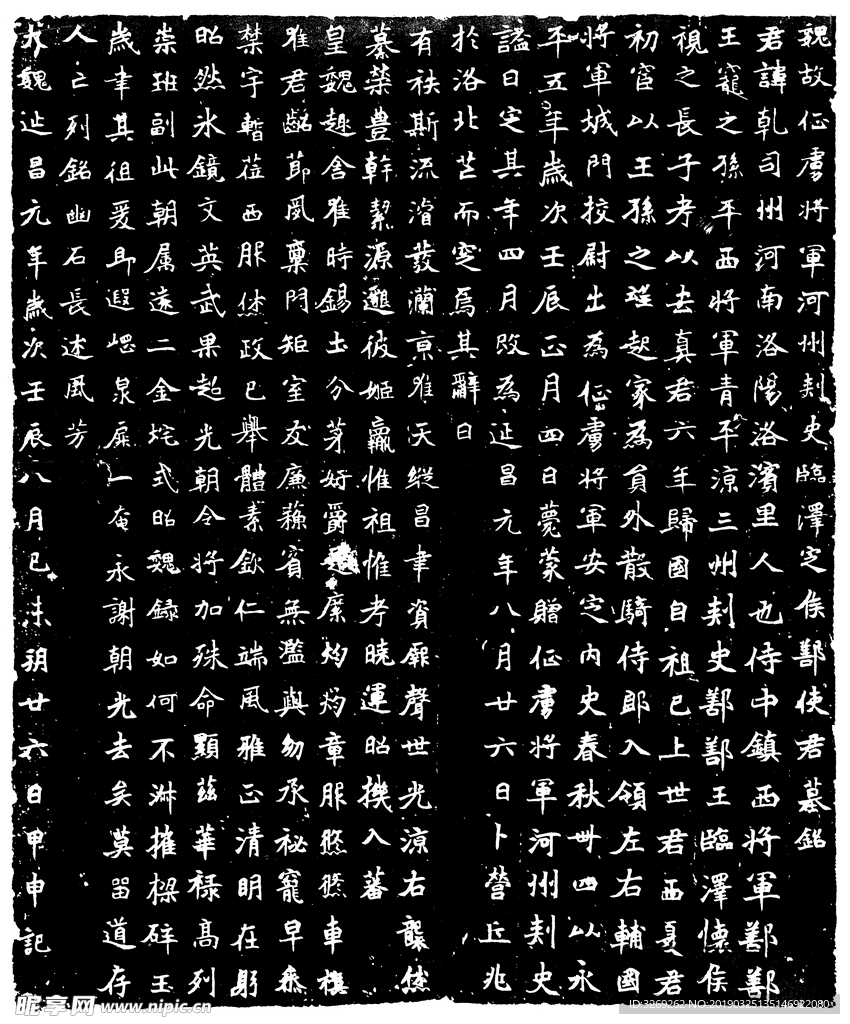 魏故征虜將軍河州刾史臨澤定侯鄯使君墓銘
君諱乾司州河南洛陽洛濱里人也侍中鎮西將軍鄯鄯
王寵之孫平西將軍青平涼三州刾史鄯鄯王臨澤懷侯
視之長子考以去真君六年歸國自祖已上世君西夏君
初宦以王孫之望起家為員外散騎侍郎入領左右輔國
將軍城門挍尉出為征虜將軍安定內史春秋卌四以永
平五年歲次壬辰正月四日薨蒙贈征虜將軍河州刾史
謚曰定其年四月改為延昌元年八月廿六日卜營丘兆
於洛北芒而窆焉其辭曰
有秩斯流濬發瀾京惟天縱昌聿資厥聲世光涼右襲休
纂榮豊幹絜源邈彼姬羸惟祖惟考曉運昭機入蕃
皇魏趣舍唯時錫土分茅好爵縻灼灼章服悠悠車旗
唯君韶節夙稟門矩室友廉蘇賓無濫與幼承秘寵早參
禁宇暫莅西服休政已舉體素欽仁端風雅正清明在躬
昭然氷鏡文英武果超光朝令將加殊命顯茲華祿高列
崇班副此朝屬遠二金式昭魏錄如何不淋摧樑碎玉
歲聿其徂爰即遐泉扉一奄永謝朝光去矣莫留道存
人亡列銘幽石長述風芳
大魏延昌元年歲次壬辰八月己未朔廿六日甲申記
昵享网 www.nipic.cn
ID:3969262 NO:20190325135146922080